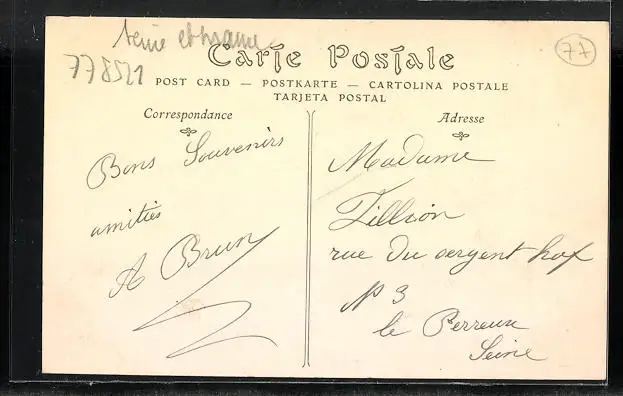 Seine et Marne
778521
77
Carte Postale
POST CARD — POSTKARTE — CARTOLINA POSTALE
TARJETA POSTAL
Correspondance
Bons Souvenirs
amitiés
A Brun
Adresse
Madame
Zillion
rue du sergent hof
N° 3
le Perreux
Seine